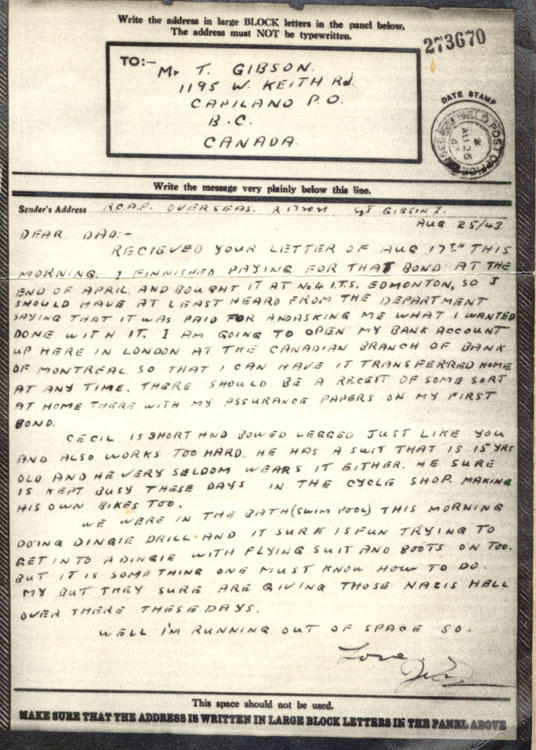 Write the address in large BLOCK letters in the panel below.
The address must NOT be typewritten.
273670
TO:-
Mr T. GIBSON.
1195 W. KEITH Rd.
CAPILANO P.O.
B.C.
CANADA.
DATE STAMP
POST OFFICE
AU 25
43
Write the message very plainly below this line.
Sender's Address R.C.A.F. OVERSEAS. GIBSON J.
AUG 25/43
DEAR DAD:-
RECIEVED YOUR LETTER OF AUG 17TH THIS
MORNING. I FINNISHED PAYING FOR THAT BOND AT THE
END OF APRIL AND BOUGHT IT AT No4 I.T.S. EDMONTON, SO I
SHOULD HAVE AT LEAST HEARD FROM THE DEPARTMENT
SAYING THAT IT WAS PAID FOR AND ASKING ME WHAT I WANTED
DONE WITH IT. I AM GOING TO OPEN MY BANK ACCOUNT
UP HERE IN LONDON AT THE CANADIAN BRANCH OF BANK
OF MONTREAL SO THAT I CAN HAVE IT TRANSFERRED HOME
AT ANY TIME. THERE SHOULD BE A RECEIT OF SOME SORT
AT HOME THERE WITH MY ASSURANCE PAPERS ON MY FIRST
BOND.
CECIL IS SHORT AND BOWED LEGGED JUST LIKE YOU
AND ALSO WORKS TOO HARD. HE HAS A SUIT THAT IS 15 YRS
OLD AND HE VERY SELDOM WEARS IT EITHER. HE SURE
IS KEPT BUSY THESE DAYS IN THE CYCLE SHOP. MAKING
HIS OWN BIKES TOO.
WE WERE IN THE BATH (SWIM POOL) THIS MORNING
DOING DINGIE DRILL AND IT SURE IS FUN TRYING TO
GET INTO A DINGIE WITH FLYING SUIT AND BOOTS ON TOO.
BUT IT IS SOMETHING ONE MUST KNOW HOW TO DO.
MY BUT THEY SURE ARE GIVING THOSE NAZIS HELL
OVER THERE THESE DAYS.
WELL I'M RUNNING OUT OF SPACE SO.
Love,
This space should not be used.
MAKE SURE THAT THE ADDRESS IS WRITTEN IN LARGE BLOCK LETTERS IN THE PANEL ABOVE